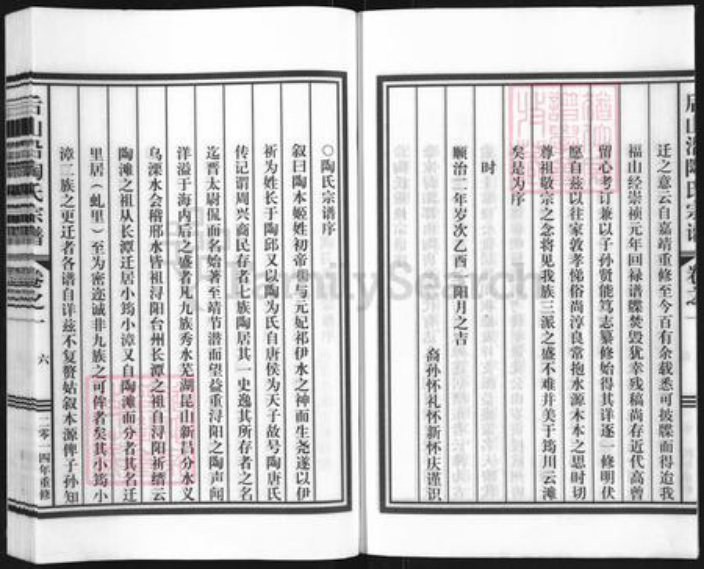 迁之意云自嘉靖重修至今百有余载悉可披牒而得迨我
福山经崇祯元年回禄谱牒焚毁犹幸残稿尚存近代高曾
留心考订兼以子孙贤能笃志纂修始得其详逐一修明伏
愿自兹以往家敦孝悌俗尚淳良常抱水源木本之思时切
尊祖敬宗之念将见我族三派之盛不难并美于筠川云滩
矣是为序
时
顺治二年岁次乙酉 阳月之吉
裔孙怀礼怀新怀庆谨识
〇陶氏宗谱序
叙曰陶本姬姓初帝喾与元妃祁伊水之神而生尧遂以伊
祈为姓长于陶邱又以陶为氏自唐侯为天子故号陶唐氏
传记谓周兴商民存者七族陶居其一史逸其所存者之名
迄晋太尉侃而名始著至靖节潜而望益重浔阳之陶声闻
洋溢于海内后之盛者凡九族秀水芜湖昆山新昌分水义
乌溧水会稽邢水皆祖浔阳台州长潭之祖自浔阳祈缙云
陶滩之祖从长潭迁居小筠小漳又自陶滩而分者其名迁
里居（虬里）至为密迩诚非九族之可侔者矣其小筠小
漳二族之更迁者各谱自详兹不复赘姑叙本源俾子孙知
后山沿陶氏宗谱
卷之一
六
二零一四年重修
FamilySearch